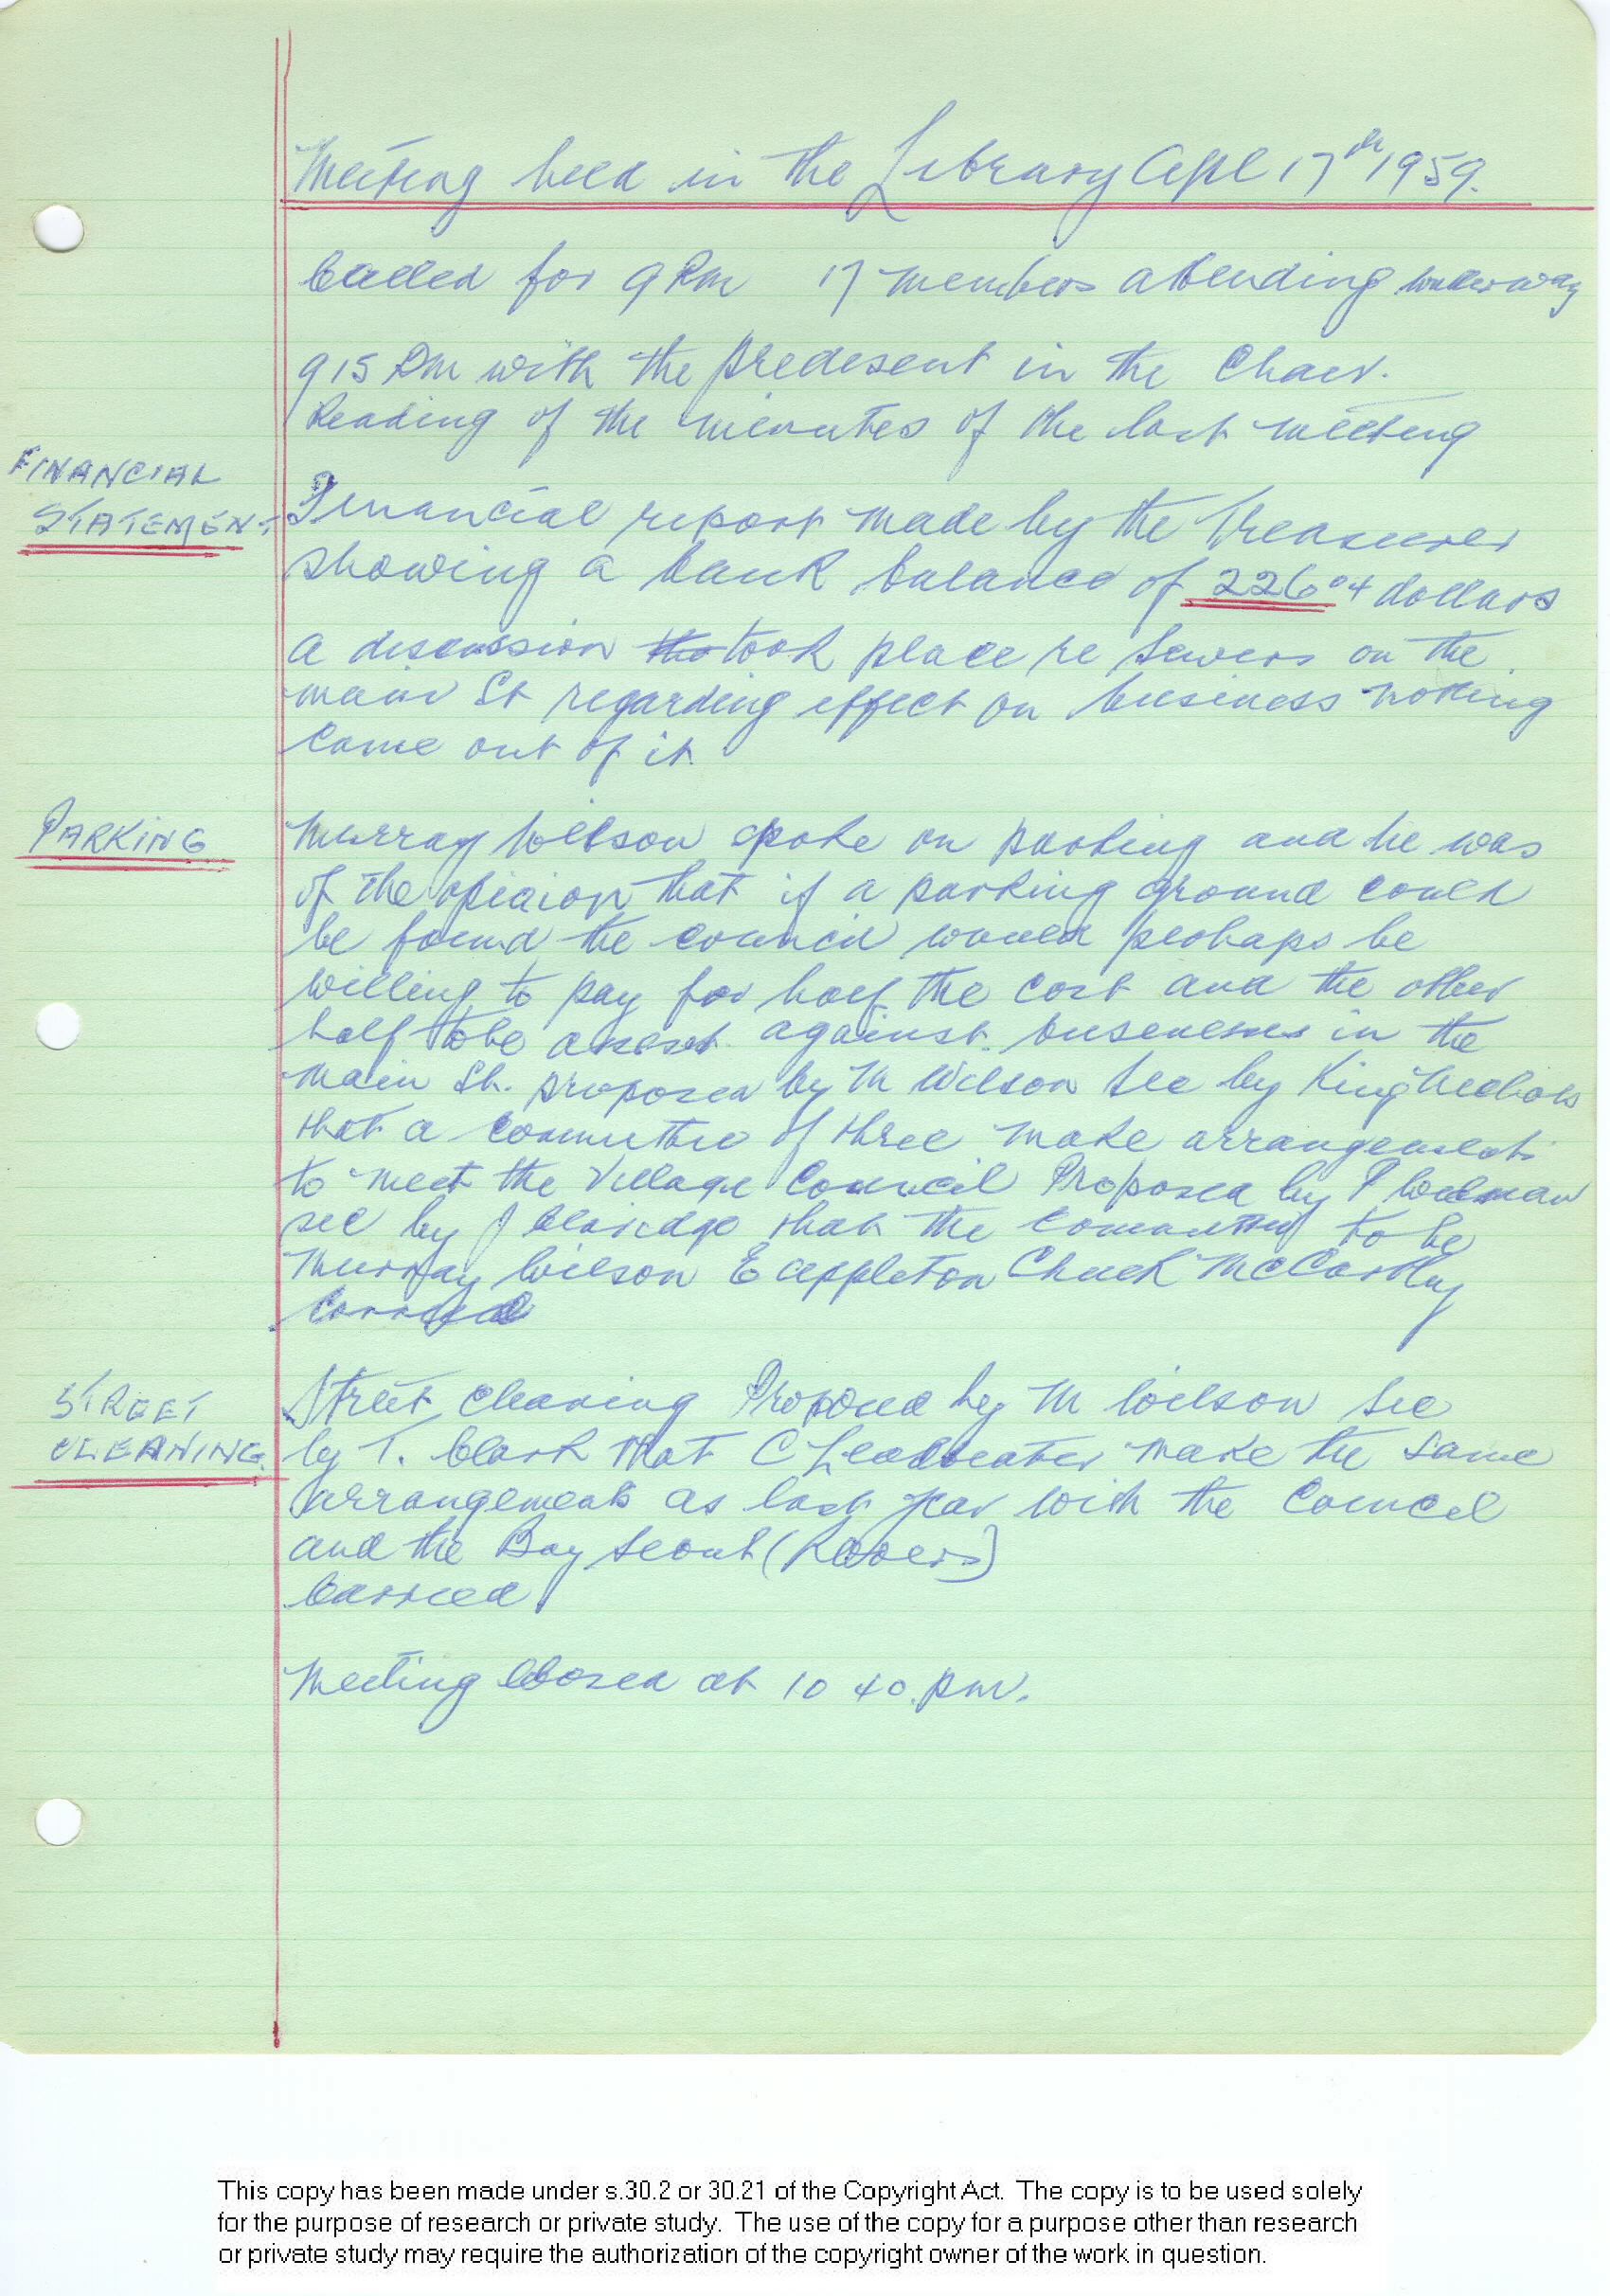 Meeting held in the Library Apl 17th 1959.
Called for 9 Pm 17 members attending underway
9 15 Pm with the predesent in the Chair.
Reading of the minutes of the last meeting
FINANCIAL
STATEMENT
Financial report made by the Treasurer
showing a bank balance of 226 04 dollars
a discussion tho took place re sewers on the
main St regarding effect on business nothing
came out of it.
PARKING
Murray Wilson spoke on parking and he was
of the opinion that if a parking ground could
be found the council would perhaps be
willing to pay for half the cost and the other
half to be against businesses in the
main St. proposed by M Wilson Sec by King Nichols
that a committee of three make arrangements
to meet the Village Council Proposed by P
sec by J Claridge that the committee to be
Murray Wilson E Appleton Chuck McCarthy
Carried
STREET
CLEANING
Street Cleaning Proposed by M Wilson Sec
by T. Clark that C Leadbeater make the same
arrangements as last year with the Council
and the Boy Scout (Rovers)
Carried
Meeting closed at 10 40. pm.
This copy has been made under s.30.2 or 30.21 of the Copyright Act. The copy is to be used solely
for the purpose of research or private study. The use of the copy for a purpose other than research
or private study may require the authorization of the copyright owner of the work in question.